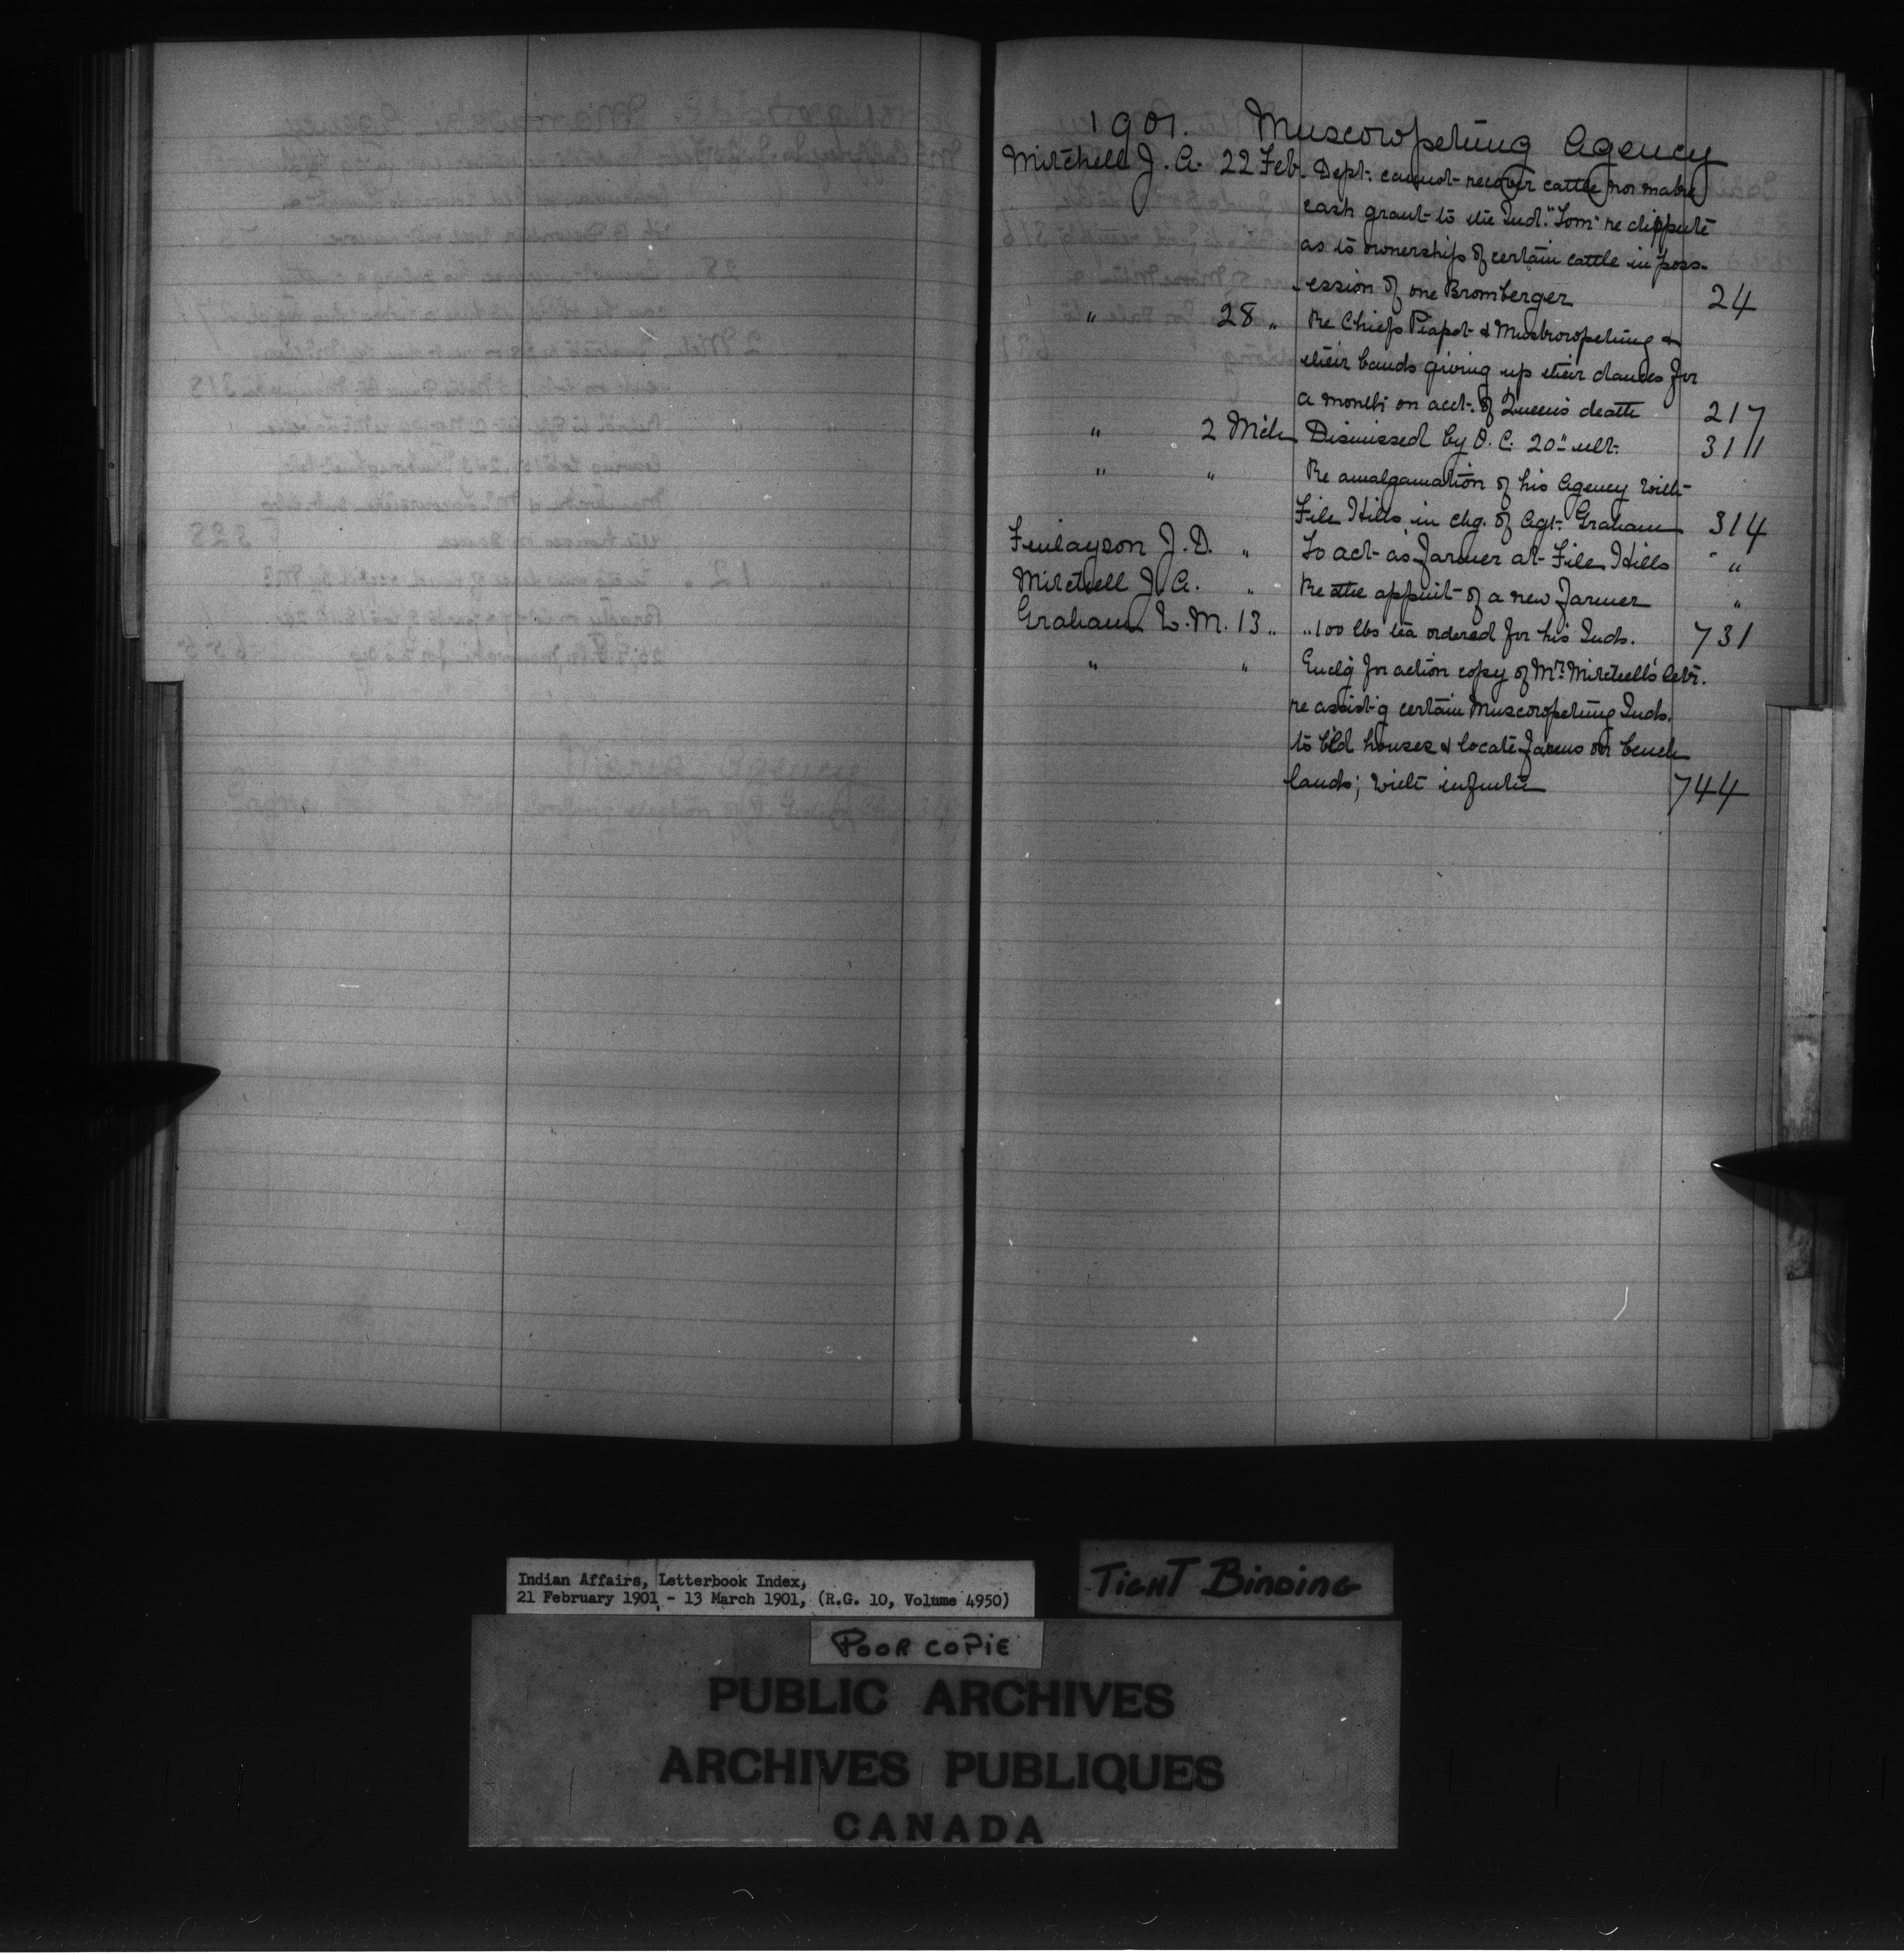 1901. Muscowpetung Agency
Mitchell J. A. 22 Feb. Dept. cannot recover cattle nor make
cash grant to the Ind. "Tom" re dispute
as to ownership of certain cattle in poss-
ession of one Bromberger 24
" 28 " Re Chiefs Piapot & Muscowpetung &
their bands giving up their dances for
a month on acct. of Queen's death 217
" 2 Mch Dismissed by O. C. 20" ult. 311
" " Re amalgamation of his Agency with
File Hills in chg. of Agt. Graham 314
Finlayson J. D. " To act as Farmer at File Hills "
Mitchell J. A. " Re the appmt of a new Farmer "
Graham W. M. 13 " " 100 lbs tea ordered for his Inds. 731
" " Enclg for action copy of Mr. Mitchell's letr.
re assist-g certain Muscowpetung Inds.
to bld houses & locate farms on bench
lands; with
744
Indian Affairs, Letterbook Index,
21 February 1901 - 13 March 1901, (R.G. 10, Volume 4950)
TIGHT BINDING
POOR COPIE
PUBLIC ARCHIVES
ARCHIVES PUBLIQUES
CANADA